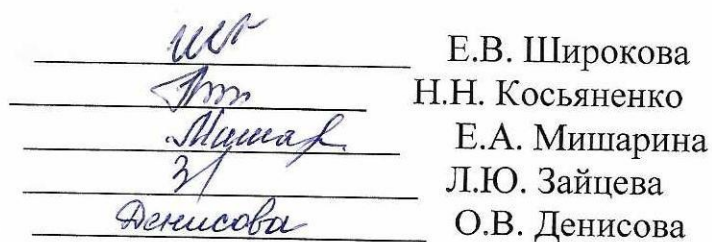 Е.В. Широкова
Н.Н. Косьяненко
Е.А. Мишарина
Л.Ю. Зайцева
Денисова О.В. Денисова